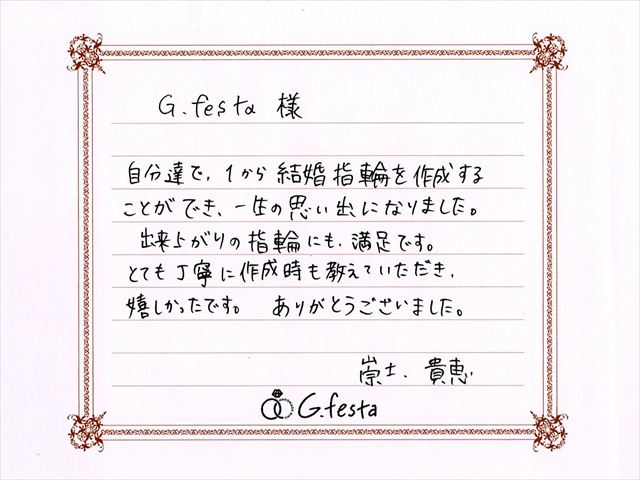 G.festa 様
自分達で、1から結婚指輪を作成する
ことができ、一生の思い出になりました。
出来上がりの指輪にも、満足です。
とても丁寧に作成時も教えていただき、
嬉しかったです。 ありがとうございました。
崇士、貴恵
G.festa